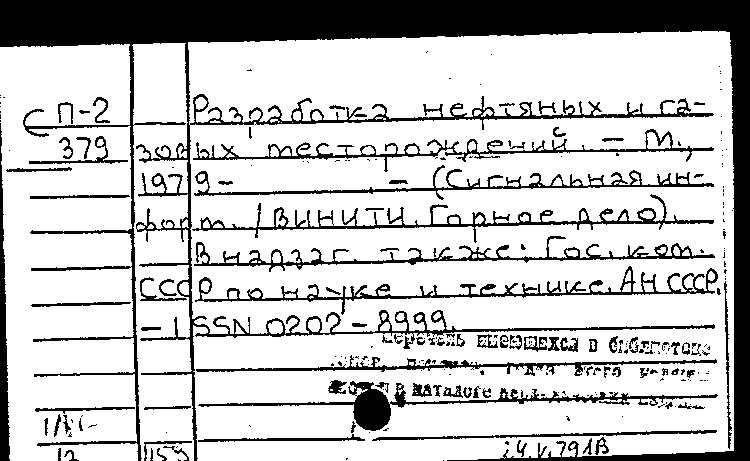 П-2 Разработка нефтяных и га-
379 зовых месторождений. — М.,
1979- — (Сигнальная ин-
форм. / ВИНИТИ. Горное дело).
В надзаг. также: Гос. ком.
СССР по науке и технике. АН СССР.
— ISSN 0202-8999.
Перечень имеющихся в библиотеке
в каталоге